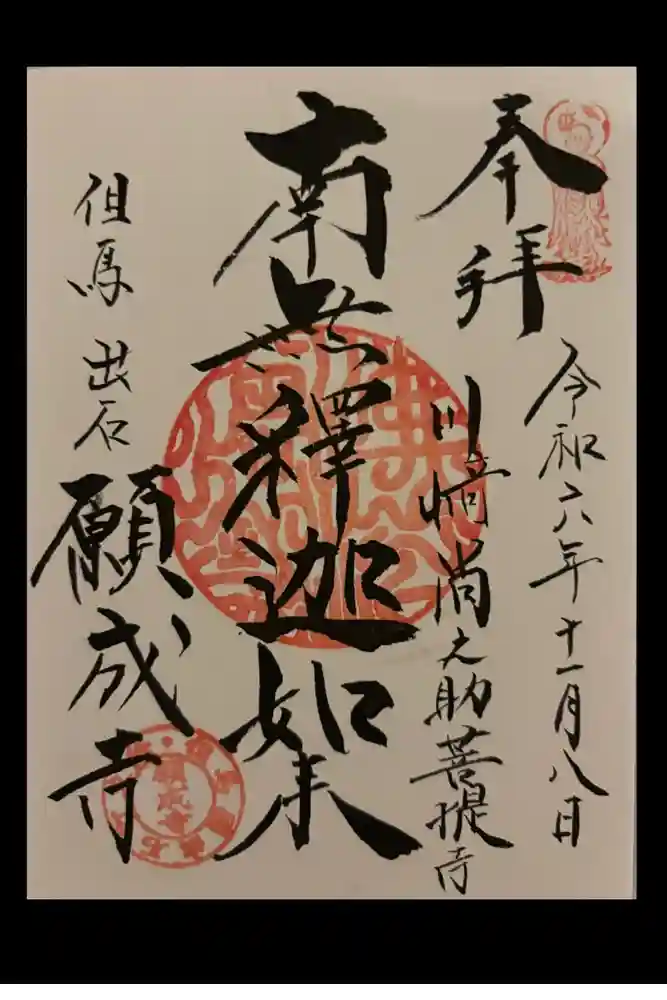 奉拝
令和六年十一月八日
川崎尚之助菩提寺
南無釋迦如来
但馬 出石
願成寺